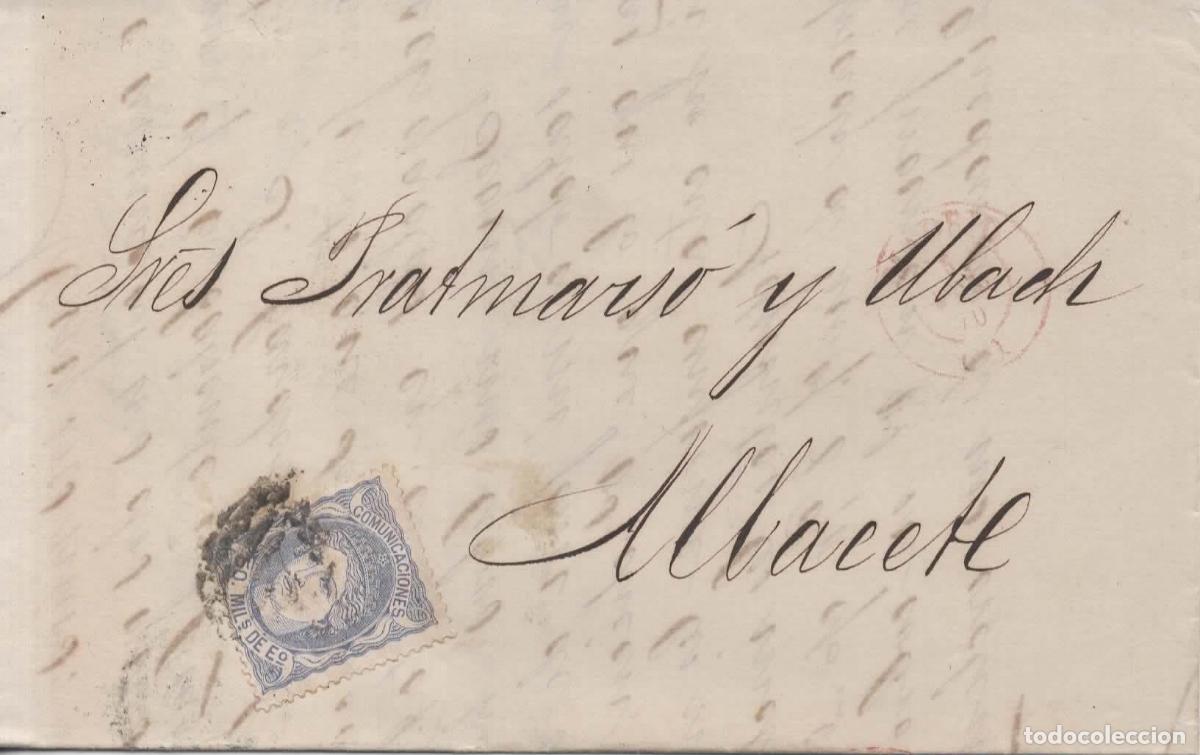 Srēs Pratmarsó y Ubach
Albacete
COMUNICACIONES
50. MILs DE Eo.
todocoleccion